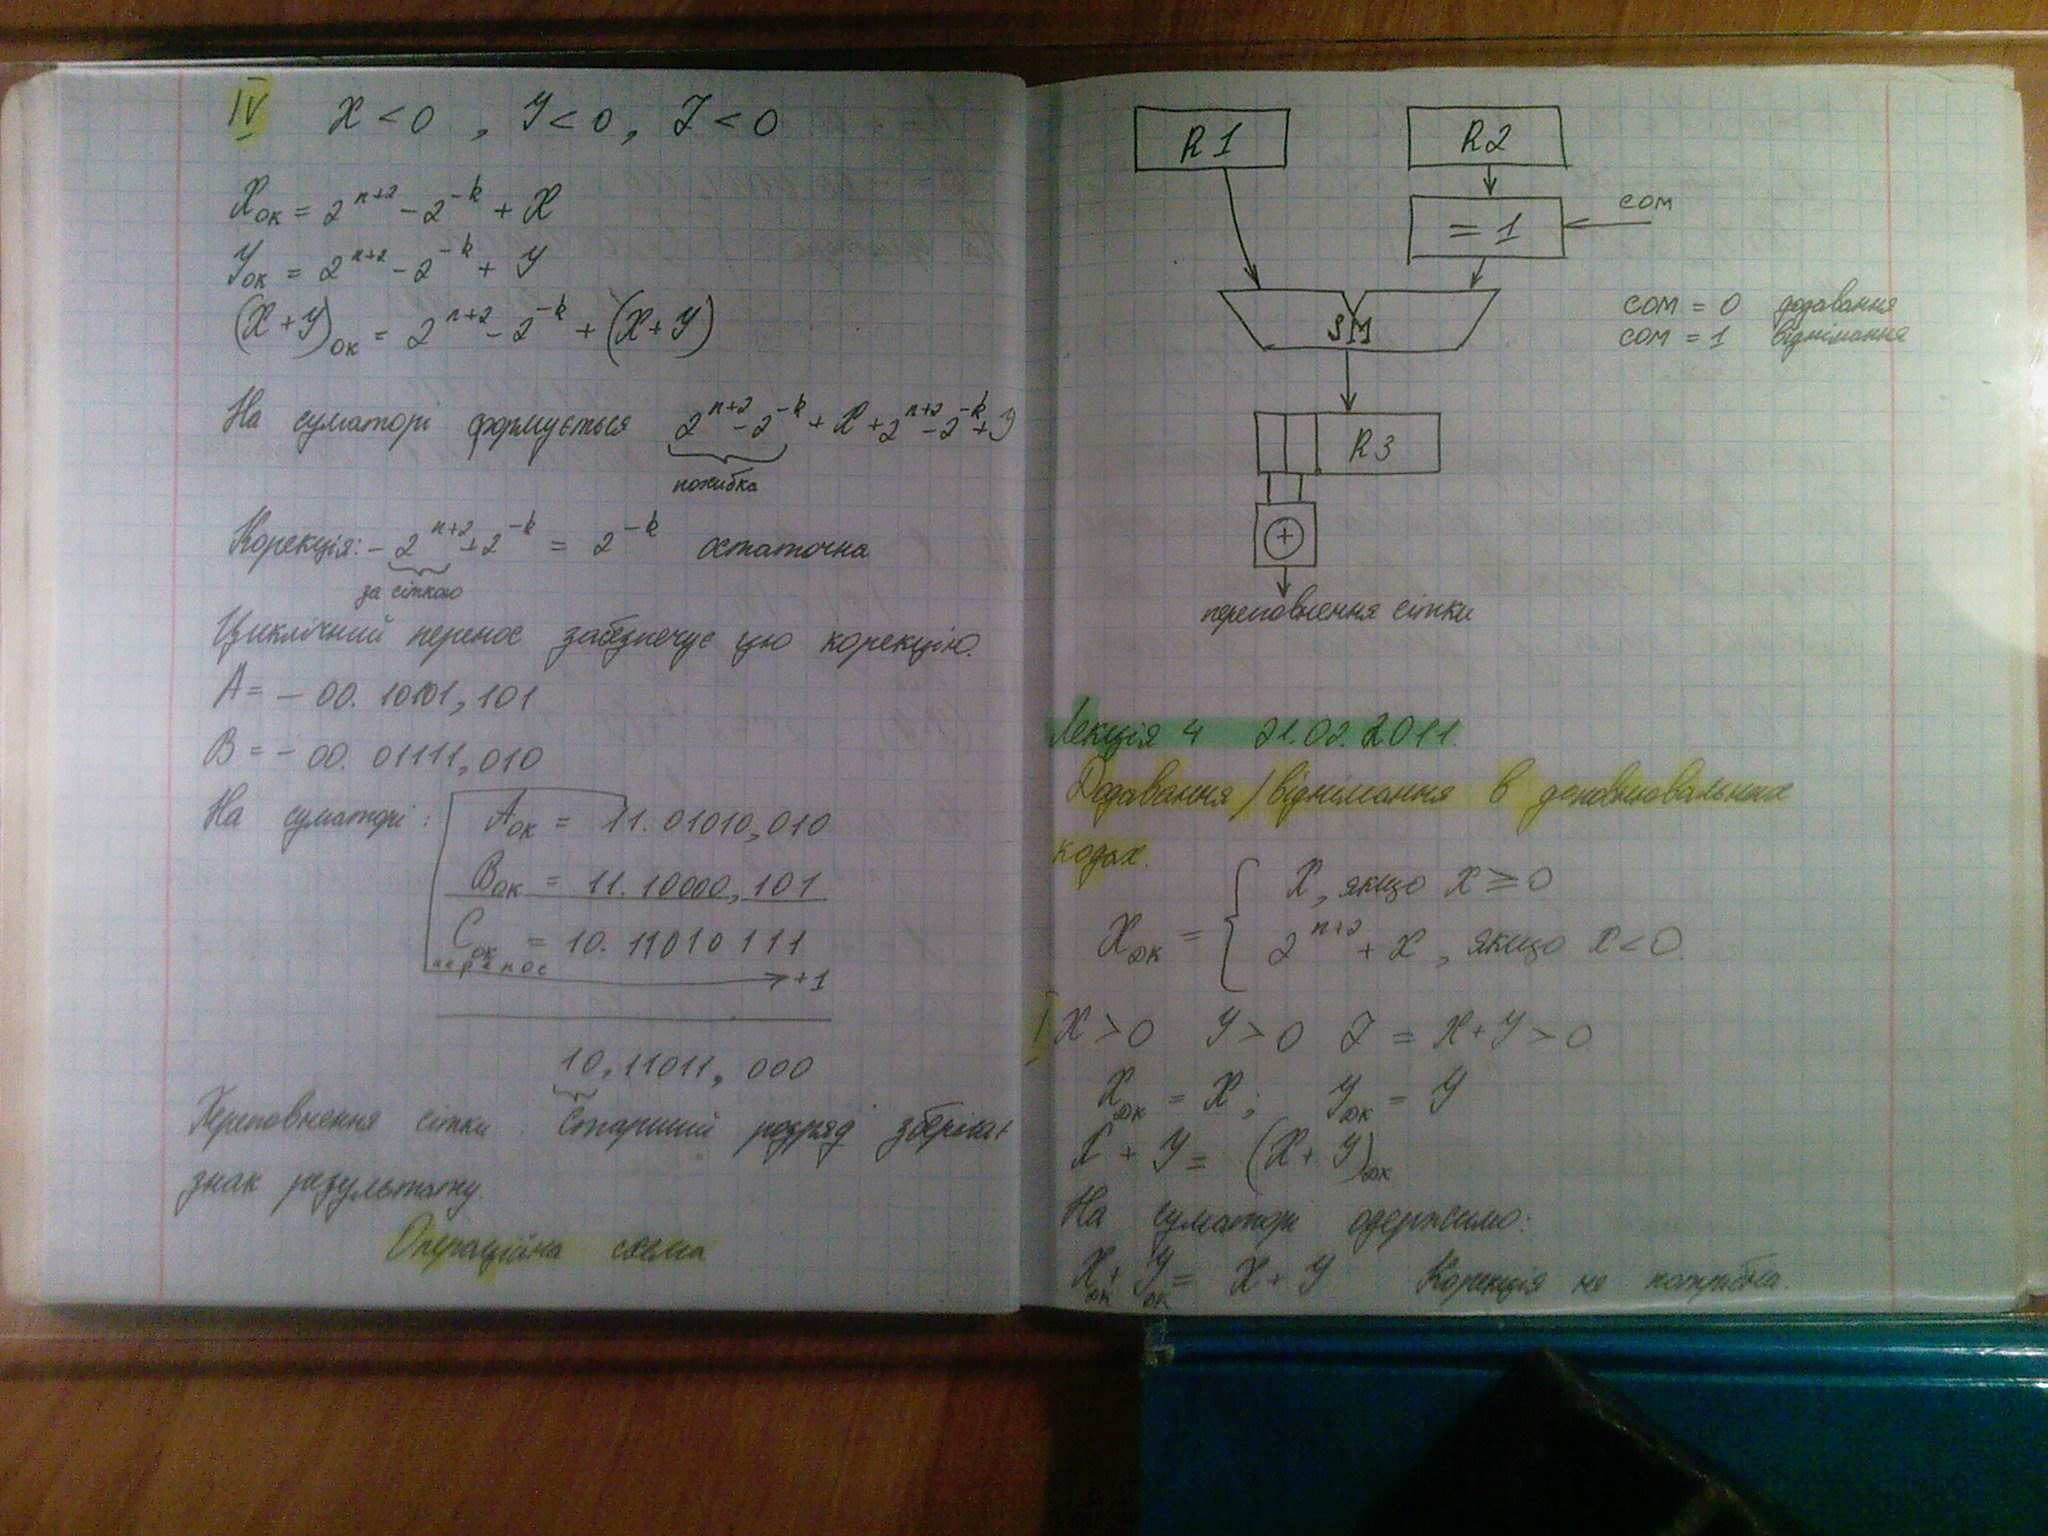 IV X < 0 , Y < 0 , Z < 0
X_ОК = 2^{n+2} - 2^{-k} + X
Y_ОК = 2^{n+2} - 2^{-k} + Y
(X+Y)_ОК = 2^{n+2} - 2^{-k} + (X+Y)
На суматорі формується 2^{n+2} - 2^{-k} + X + 2^{n+2} - 2^{-k} + Y
похибка
Корекція: - 2^{n+2} + 2^{-k} = 2^{-k} остаточна
за сіткою
Циклічний перенос забезпечує цю корекцію.
A = - 00. 10101, 101
B = - 00. 01111, 010
На суматорі: A_ОК = 11. 01010, 010
B_ОК = 11. 10000, 101
C_ОК = 10. 11010 111
перенос +1
10, 11011, 000
Переповнення сітки. Старший розряд зберігає
знак результату.
Операційна схема
R1 R2
= 1 com
SM
com = 0 додавання
com = 1 віднімання
R3
+
переповнення сітки
Лекція 4 21.02.2011.
Додавання / віднімання в доповнювальних
кодах.
X_ДК = { X, якщо X ≥ 0
2^{n+2} + X, якщо X < 0.
I X > 0 Y > 0 Z = X + Y > 0
X_ДК = X; Y_ДК = Y
X + Y = (X + Y)_ДК
На суматорі одержимо:
X_ДК + Y_ДК = X + Y Корекція не потрібна.